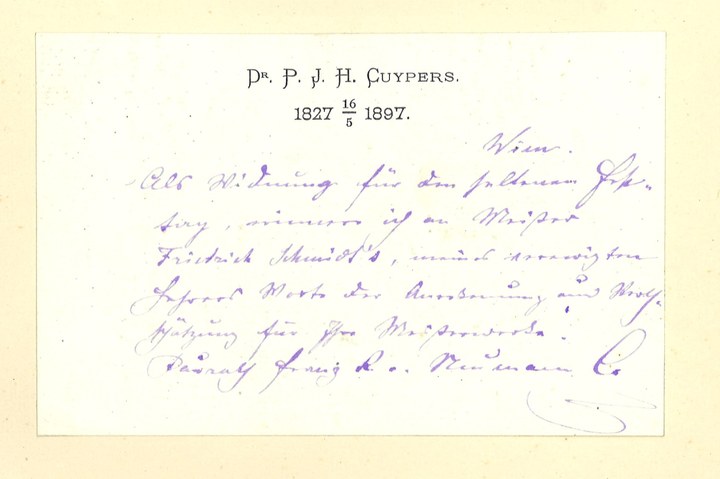 Dr. P. J. H. Cuypers.
1827 16/5 1897.
Wien.
Als Widmung für den seltenen Fest-
tag, erinnere ich an Meister
Friedrich Schmidt's, meines verewigten
Lehrers Worte der Anerkennung und Werth-
schätzung für Ihre Meisterwerke.
Baurath Franz R. v. Neumann